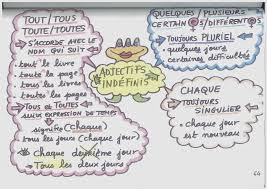 TOUT / TOUS
TOUTE / TOUTES
S'ACCORDE AVEC LE
NOM QUI SUIT
tout le livre
toute la page
tous les livres
toutes les pages
Tous et Toutes
EXPRESSION DE TEMPS
signifie (chaque)
tous les jours (chaque jour)
Chaque deuxième jour
Tous les deux jours
ADJECTIFS
INDÉFINIS
QUELQUES / PLUSIEURS
CERTAINES / DIFFÉRENTES
TOUJOURS PLURIEL
quelques jours
certaines difficultés
CHAQUE
TOUJOURS
SINGULIER
chaque jour
est nouveau